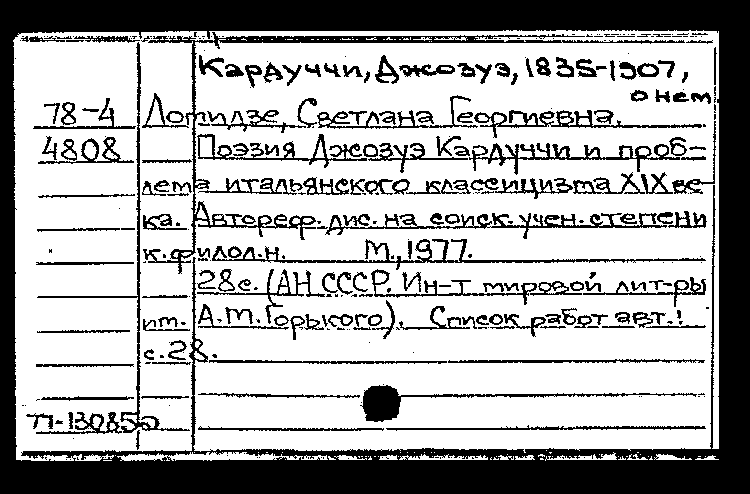 Кардуччи, Джозуэ, 1835-1907,
о нем
78-4 Ломидзе, Светлана Георгиевна.
4808 Поэзия Джозуэ Кардуччи и проб-
лема итальянского классицизма XIX ве-
ка. Автореф. дис. на соиск. учен. степени
к. филол. н. М., 1977.
28с. (АН СССР. Ин-т мировой лит-ры
им. А.М. Горького). Список работ авт.:
с.28.